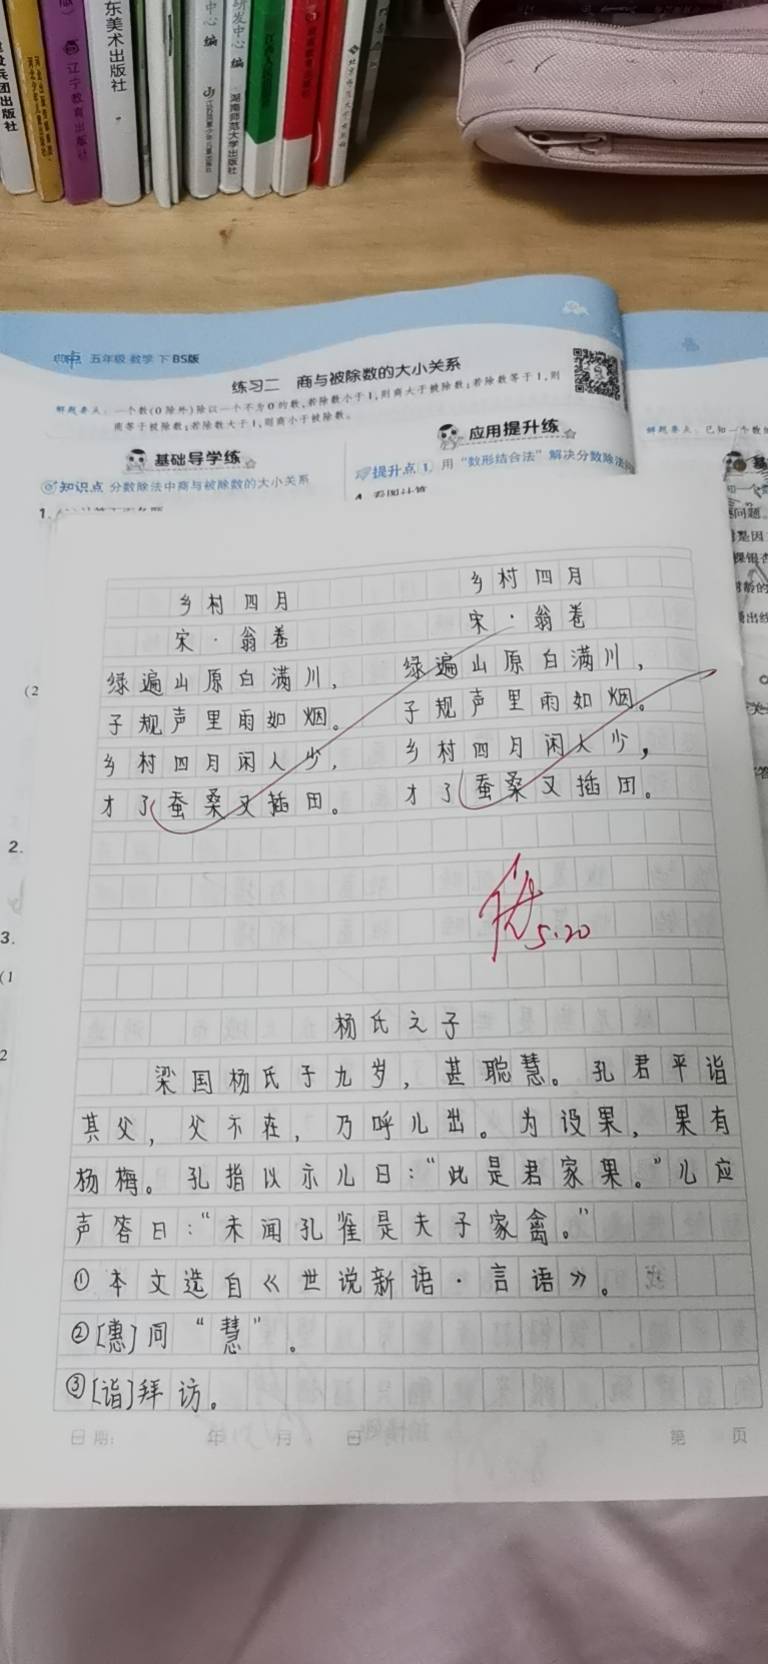 东美术出版社
辽宁教育出版社
中心 编
研发中心 编
湖南师范大学出版社
五年级 数学 下 BS版
练习二 商与被除数的大小关系
解题要点：一个数(0除外)除以一个不为0的数,若除数小于1,则商大于被除数;若除数等于1,则
商等于被除数;若除数大于1,则商小于被除数。
基础导学练
知识点 分数除法中商与被除数的大小关系
1.
应用提升练
提升点 1. 用“数形结合法”解决分数除法
4. 看图计算
解题要点：已知一个数
(2
2.
3.
(1
2
乡村四月
宋·翁卷
绿遍山原白满川，
子规声里雨如烟。
乡村四月闲人少，
才了蚕桑又插田。
乡村四月
宋·翁卷
绿遍山原白满川，
子规声里雨如烟。
乡村四月闲人少，
才了蚕桑又插田。
优 5.20
杨氏之子
梁国杨氏子九岁，甚聪慧。孔君平诣
其父，父不在，乃呼儿出。为设果，果有
杨梅。孔指以示儿曰：“此是君家果。”儿应
声答曰：“未闻孔雀是夫子家禽。”
①本文选自《世说新语·言语》。
②[惠]同“慧”。
③[诣]拜访。
日期： 年 月 日
第 页